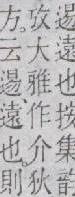 逷遠也按集韻
攷大雅作介狄
方。云逷遠也。則